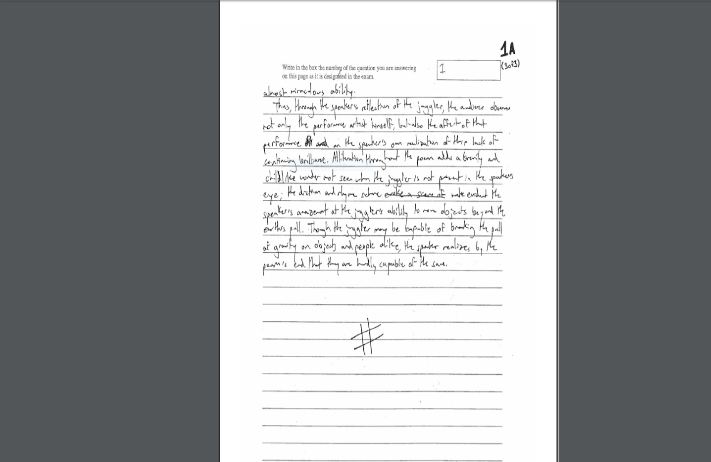 1A
(3 of 3)
Write in the box the number of the question you are answering
on this page as it is designated in the exam.
1
almost miraculous ability.
Thus, through the speaker's reflection of the juggler, the audience observes
not only the performance artist himself, but also the affect of that
performance and on the speaker's own realization of their lack of
continuing brilliance. Alliteration throughout the poem adds a brevity and
childlike wonder not seen when the juggler is not present in the speakers
eye; the diction and rhyme scheme make a scene of make evident the
speaker's amazement at the juggler's ability to move objects beyond the
earth's pull. Though the juggler may be capable of breaking the pull
of gravity on objects and people alike, the speaker realizes by the
poem's end that they are hardly capable of the same.
#